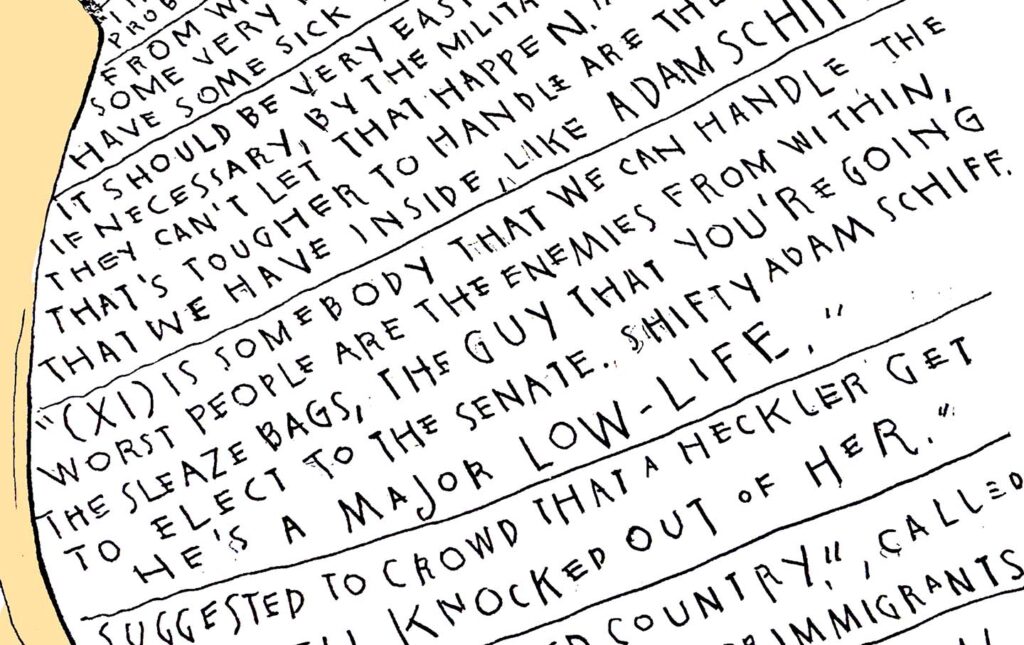 PROB
FROM W
SOME VERY
HAVE SOME SICK
IT SHOULD BE VERY EAS
IF NECESSARY, BY THE MILITA
THEY CAN'T LET THAT HAPPEN."
THAT'S TOUGHER TO HANDLE ARE THE
THAT WE HAVE INSIDE, LIKE ADAM SCHIFF
"(XI) IS SOMEBODY THAT WE CAN HANDLE THE
WORST PEOPLE ARE THE ENEMIES FROM WITHIN,
THE SLEAZE BAGS, THE GUY THAT YOU'RE GOING
TO ELECT TO THE SENATE. SHIFTY ADAM SCHIFF.
HE'S A MAJOR LOW-LIFE."
SUGGESTED TO CROWD THAT A HECKLER GET
KNOCKED OUT OF HER."
COUNTRY", CALLED
IMMIGRANTS